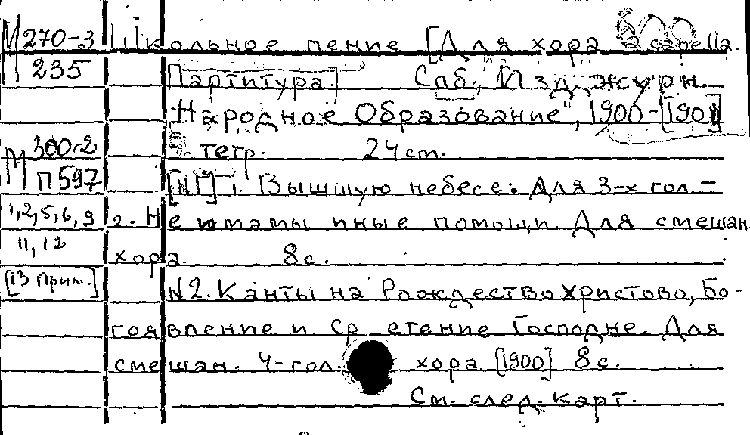 М 270-3 Школьное пение [Для хора a capella.
235 Партитура.] Спб., Изд. журн.
"Народное Образование", 1900-[1901
тетр. 24 cm.
М 300-2
П 597 [№1] 1. Взышшую небесе. Для 3-х гол.-
1,2,5,6,9 2. Не имамы иные помощи. Для смешан
11,12 хора 8 с.
[13 Прим.] №2. Канты на Рождество Христово, Бо-
гоявление и Ср етение Господне. Для
смешан. 4-гол. хора [1900] 8 с.
См. след. карт.